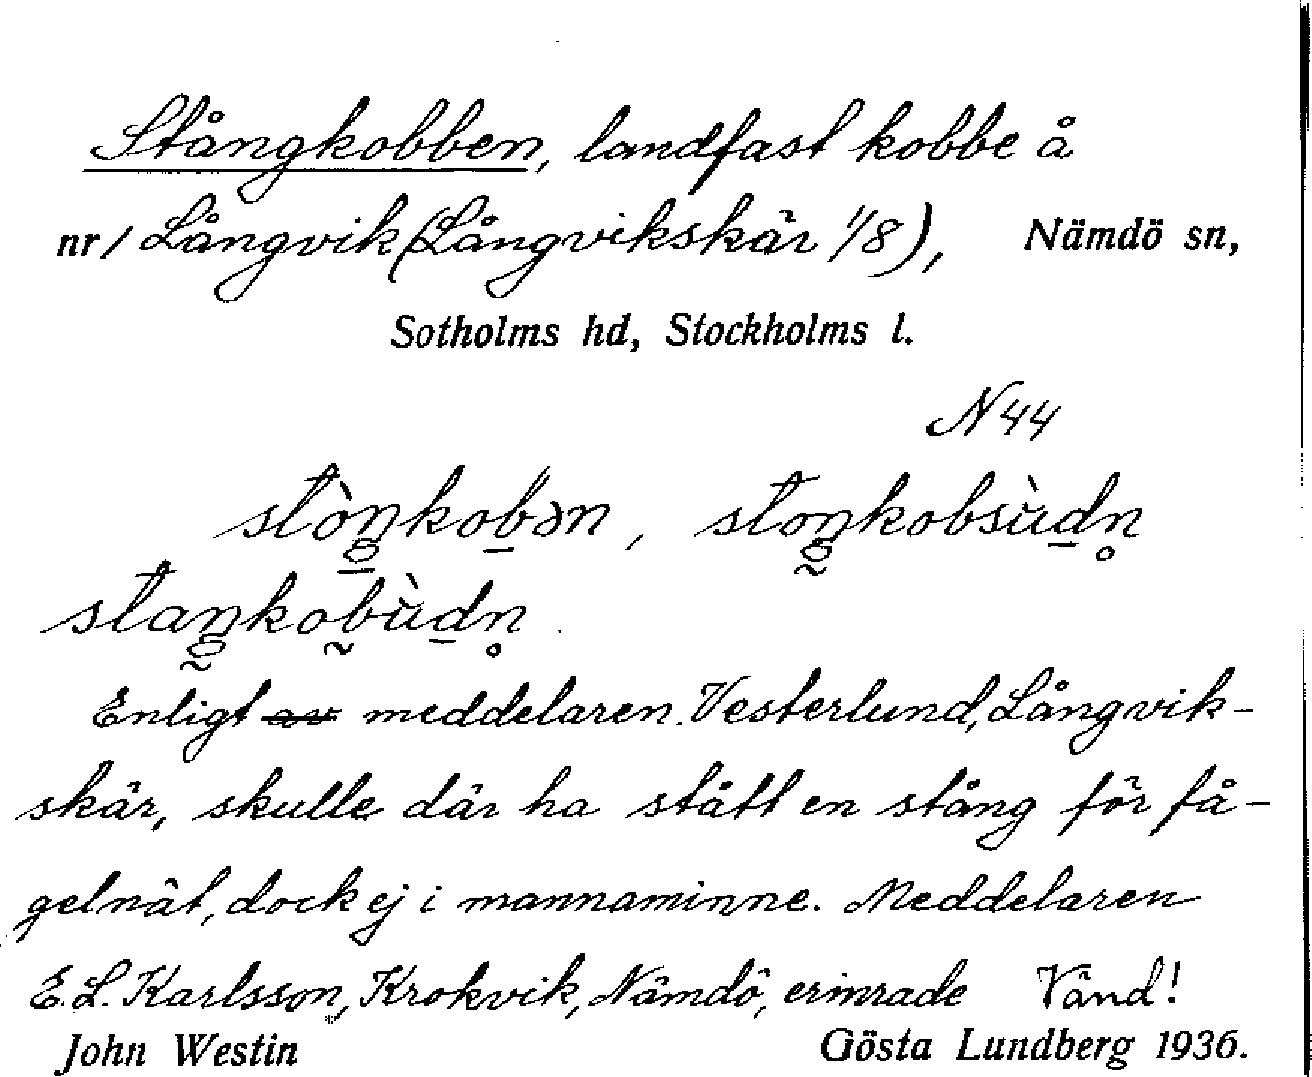 Stångkobben, landfast kobbe å
nr 1 Långvik (Långvikskär 1/8), Nämdö sn,
Sotholms hd, Stockholms l.
N 44
stòŋkobən, stoŋkobsùdn̥
staŋkobùdn̥.
Enligt av meddelaren Vesterlund, Långvik-
skär, skulle där ha stått en stång för få-
gelnät, dock ej i mannaminne. Meddelaren
E. L. Karlsson, Krokvik, Nämdö, erinrade Vänd!
John Westin Gösta Lundberg 1936.